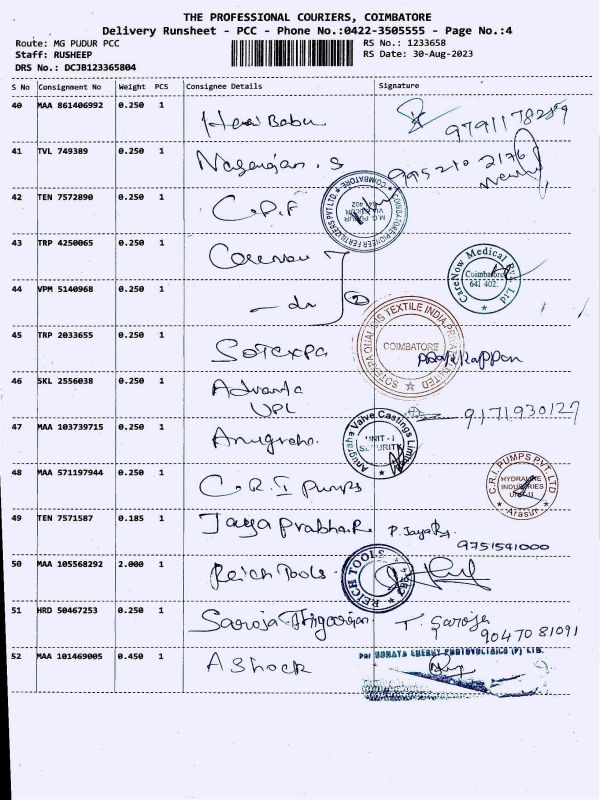 THE PROFESSIONAL COURIERS, COIMBATORE
Delivery Runsheet - PCC - Phone No.:0422-3505555 - Page No.:4
Route: MG PUDUR PCC
Staff: RUSHEEP
DRS No.: DCJB123365804
RS No.: 1233658
RS Date: 30-Aug-2023
S No Consignment No Weight PCS Consignee Details Signature
40 MAA 861406992 0.250 1 Hari Babu 9791178289
41 TVL 749389 0.250 1 Nagarajan. S 995210 2176
42 TEN 7572890 0.250 1 C.P.F
COIMBATORE PIONEER FERTILIZERS PVT LTD
COIMBATORE
M.G. PUDUR
43 TRP 4250065 0.250 1 Carenow
CareNow Medical Pvt. Ltd
Coimbatore
641 402.
44 VPM 5140968 0.250 1 - do 2
45 TRP 2033655 0.250 1 Sotexpa
SOTEXPA QUALIDIS TEXTILE INDIA PRIVATE LIMITED
COIMBATORE
46 SKL 2556038 0.250 1 Advanta
UPL 9171930127
47 MAA 103739715 0.250 1 Anugraha.
Anugraha Valve Castings Limited
UNIT - I
SECURITY
48 MAA 571197944 0.250 1 C.R.I Pumps
C.R.I. PUMPS PVT. LTD
HYDRAULIC
INDUSTRIES
UNIT-II
Arasur
49 TEN 7571587 0.185 1 Jaya Prabha.R P. Jaya
9751541000
50 MAA 105568292 2.000 1 Reich Tools.
REICH TOOLS
51 HRD 50467253 0.250 1 Saroja T. Saroja
90470 81091
52 MAA 101469005 0.450 1 Ashock
For SURATA ENERGY PHOTOVOLTAICS (P) LTD.